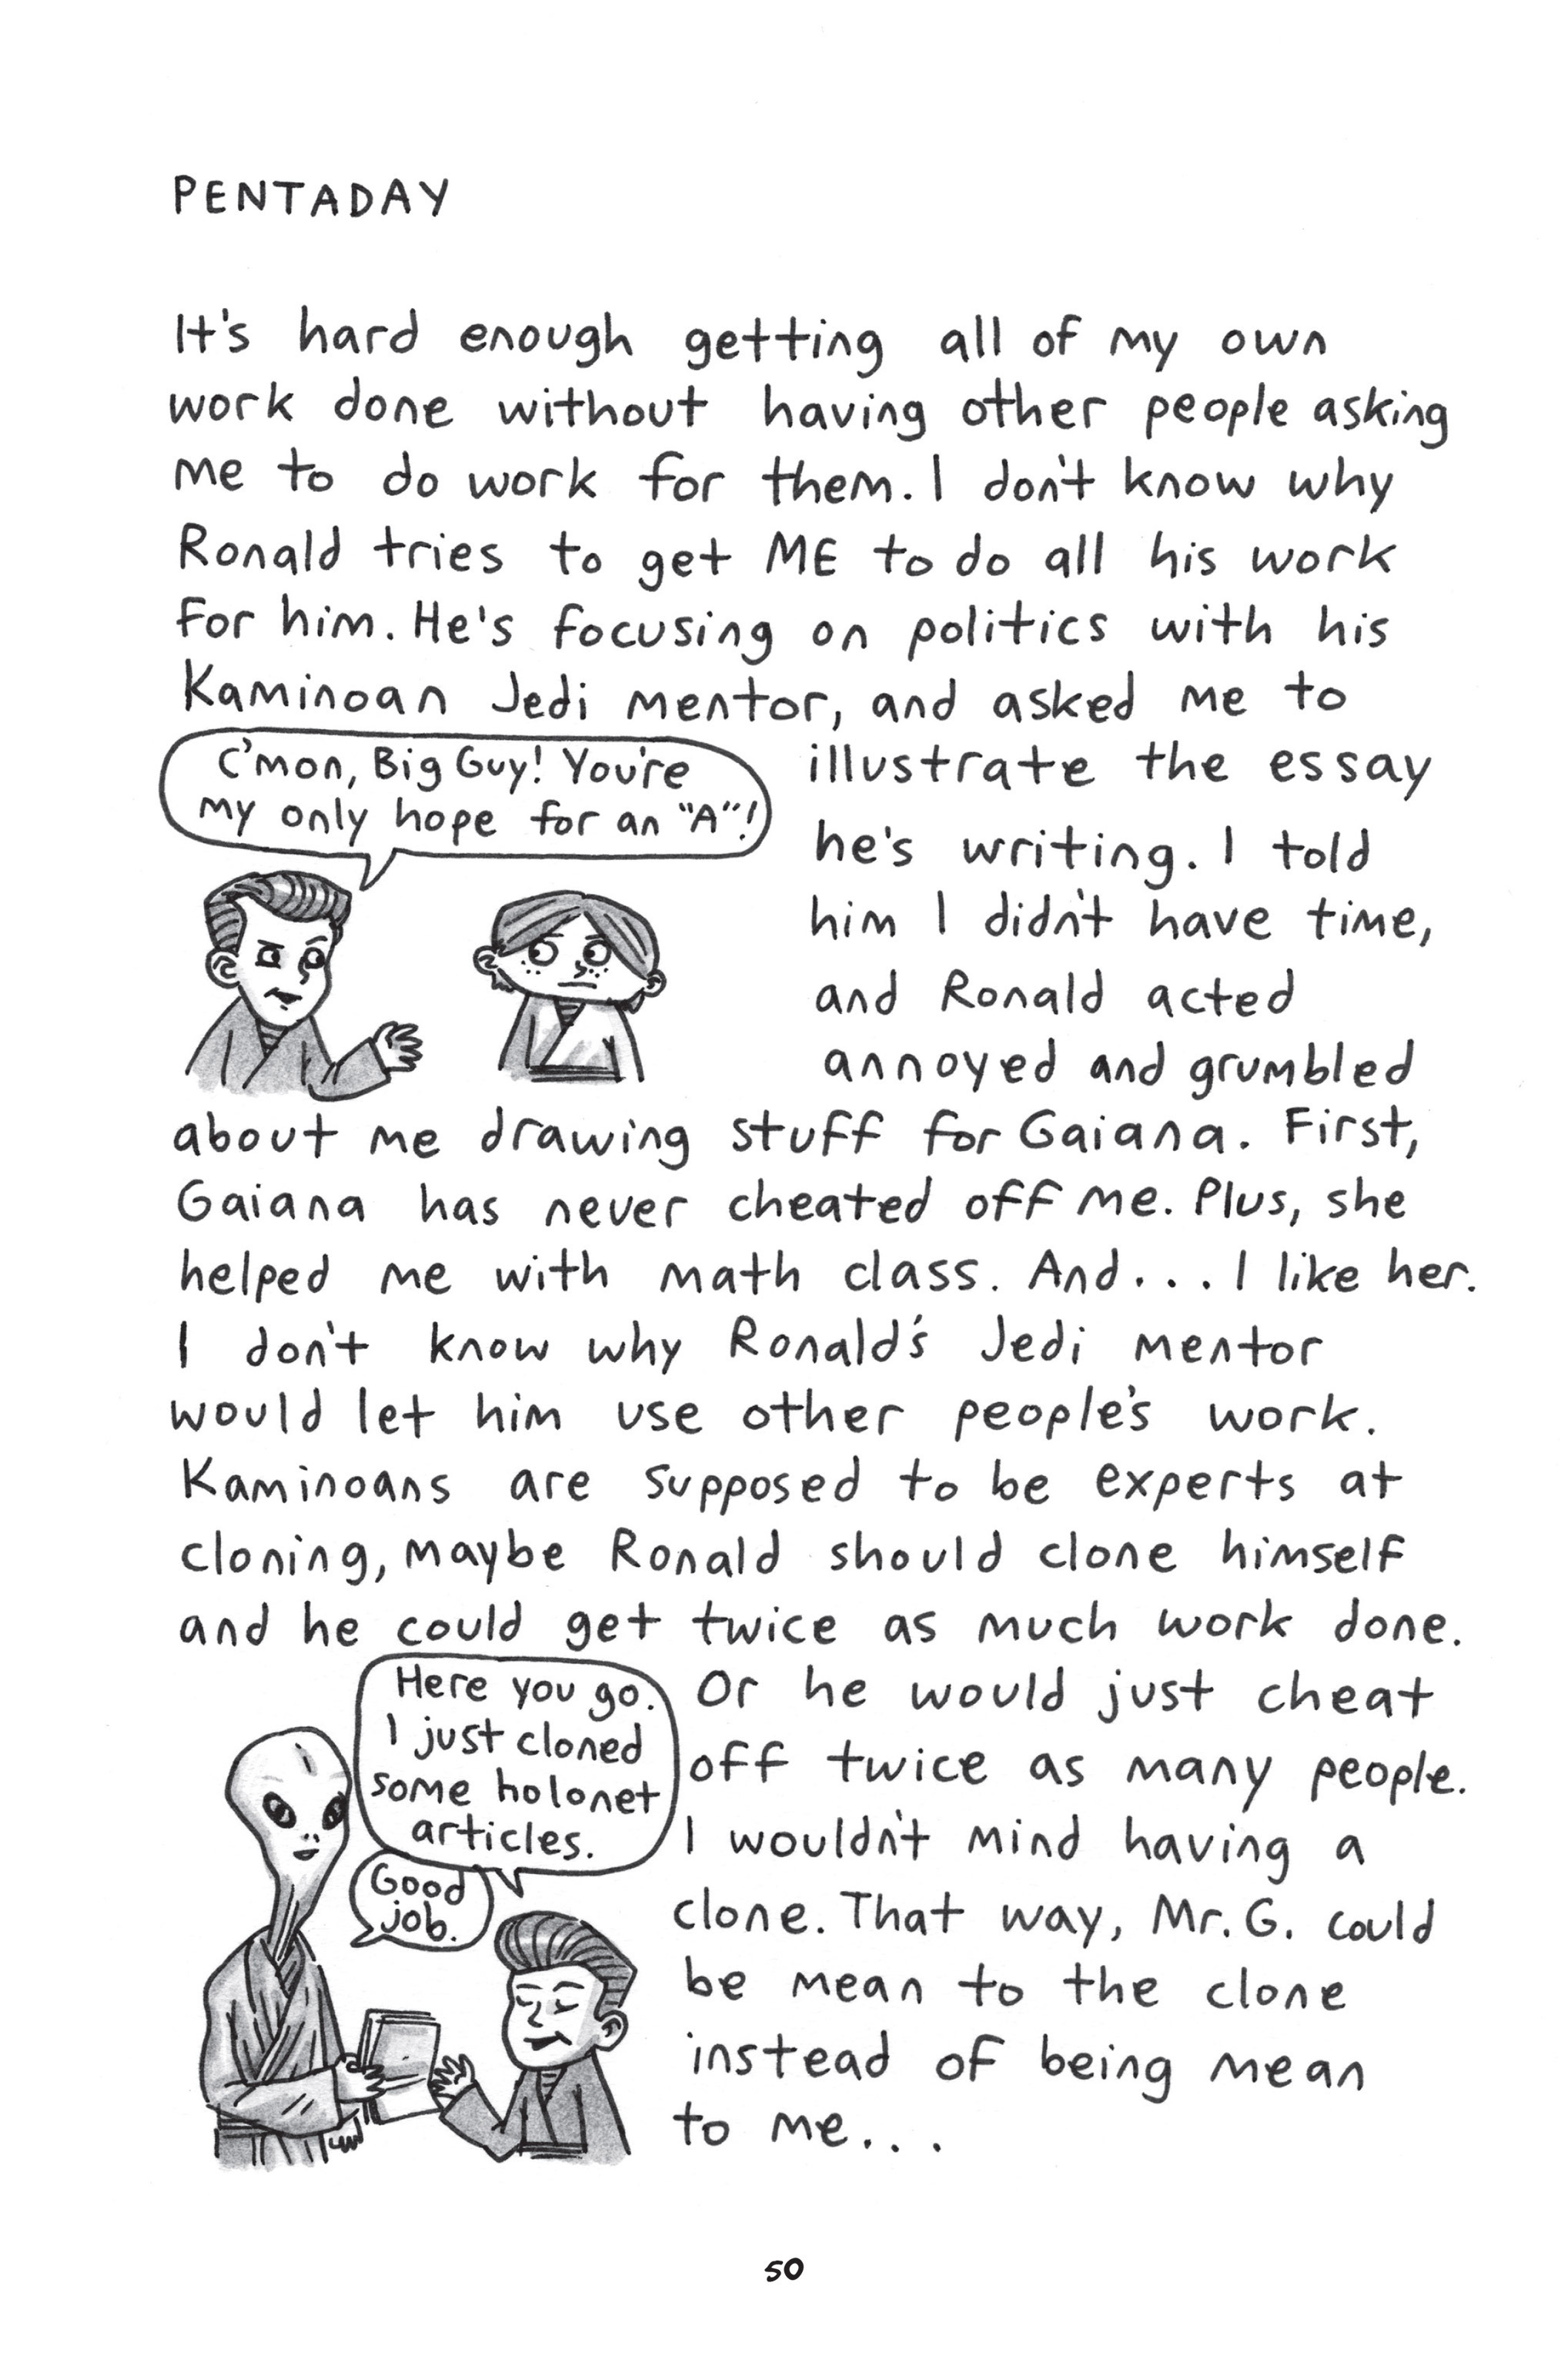 PENTADAY
It's hard enough getting all of my own
work done without having other people asking
me to do work for them. I don't know why
Ronald tries to get ME to do all his work
for him. He's focusing on politics with his
Kaminoan Jedi mentor, and asked me to
C'mon, Big Guy! You're
my only hope for an "A"!
illustrate the essay
he's writing. I told
him I didn't have time,
and Ronald acted
annoyed and grumbled
about me drawing stuff for Gaiana. First,
Gaiana has never cheated off me. Plus, she
helped me with math class. And... I like her.
I don't know why Ronald's Jedi mentor
would let him use other people's work.
Kaminoans are supposed to be experts at
cloning, maybe Ronald should clone himself
and he could get twice as much work done.
Here you go.
I just cloned
some holonet
articles.
Good
job.
Or he would just cheat
off twice as many people.
I wouldn't mind having a
clone. That way, Mr. G. could
be mean to the clone
instead of being mean
to me...
50